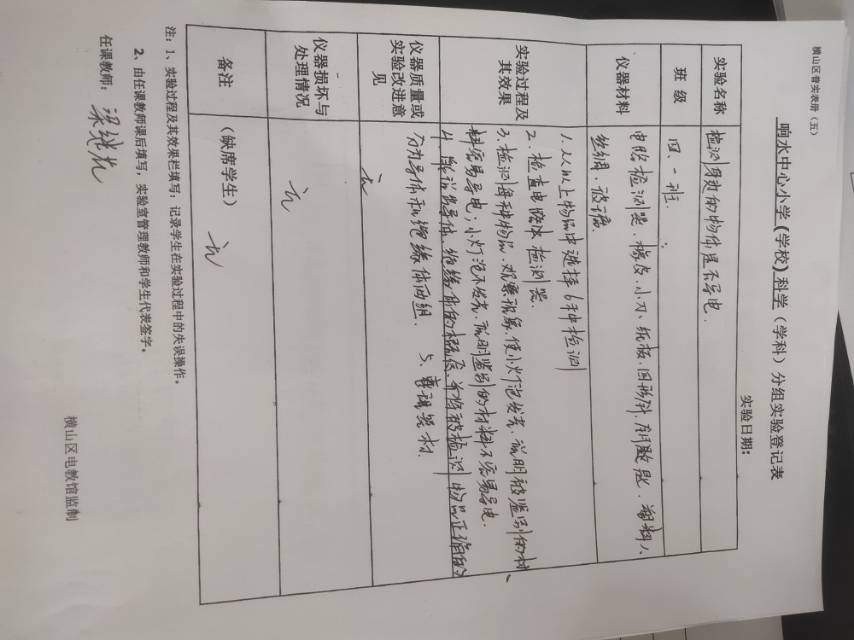 横山区普实表册（五）
响水中心小学（学校）科学（学科）分组实验登记表
实验日期：
实验名称 检测身边的物体是否导电.
班级 四、一班.
仪器材料 电路检测器、橡皮、小刀、纸板、回形针、
丝绸、玻璃.
实验过程及其效果
1.从以上物品中选择6种检测
2.检查电路检测器.
3.检测每种物品,观察现象,使小灯泡发光,说明被鉴别的材
料容易导电;小灯泡不发光,说明鉴别的材料不容易导电.
4.导体、绝缘体的概念,并将被检测物品正确的
分为导体和绝缘体两组. 5.整理器材.
仪器质量或实验改进意见 无
仪器损坏与处理情况 无
备注 （缺席学生） 无
注：1、实验过程及其效果栏填写：记录学生在实验过程中的失误操作。
2、由任课教师课后填写，实验室管理教师和学生代表签字。
任课教师：
横山区电教馆监制